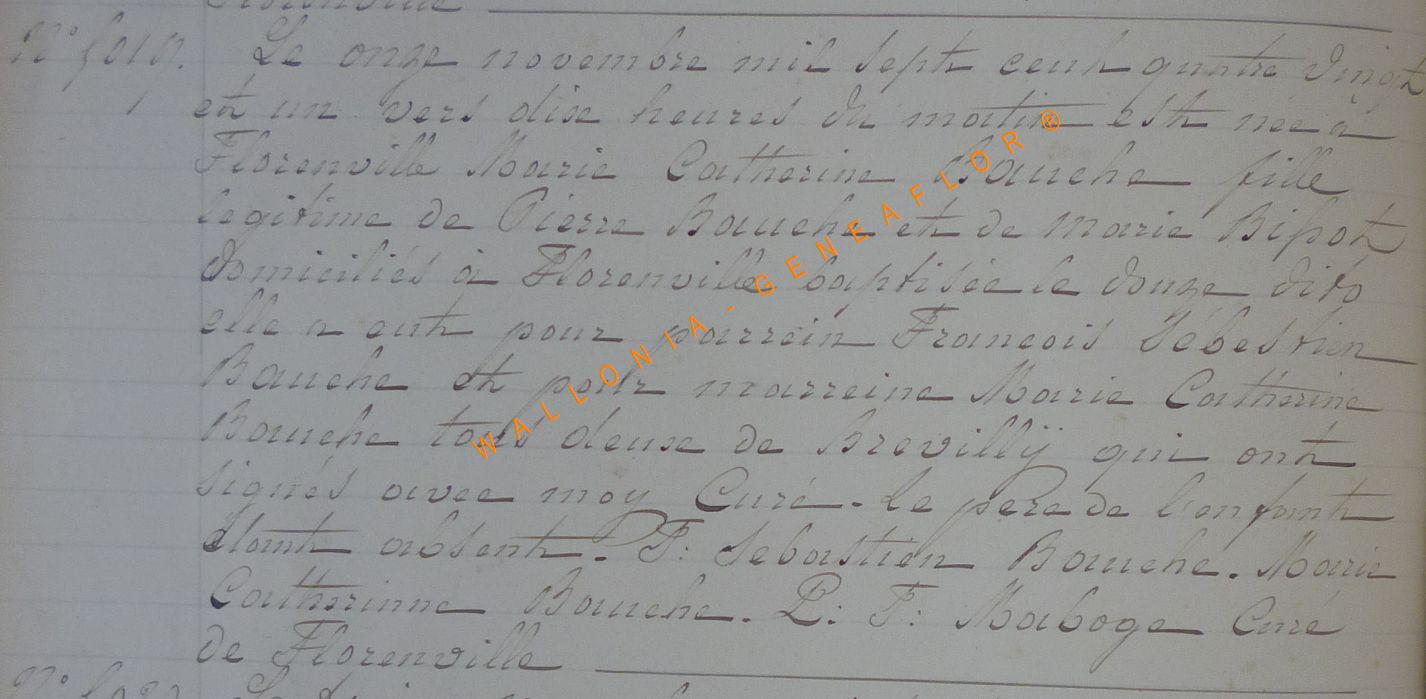 Florenville
N° 5019. Le onze novembre mil sept cent quatre vingt
et un vers dix heures du matin est née à
Florenville Marie Catherine Bauche fille
legitime de Pierre Bauche et de Marie Bipot
domiciliés à Florenville baptisée le douze dito
elle a eut pour parrein Francois Sébestien
Bauche et pour marreine Marie Catherine
Bauche tous deux de Brevillÿ qui ont
signés avec moy Curé. Le pere de l'enfant
étant absent. F: Sebastien Bauche. Marie
Catherinne Bauche. P: F: Maboge Curé
de Florenville
N° 5020. Le
WALLONIA - GENEAFLOR ®